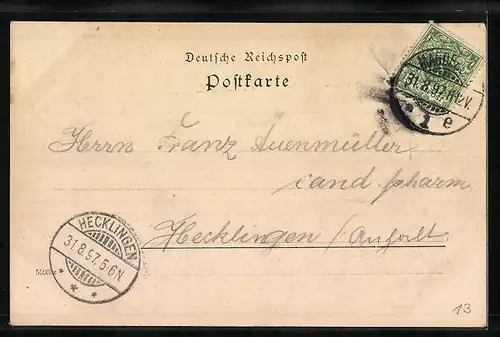 Deutsche Reichspost
Postkarte
31.8.97.
* 1 e
Herrn Franz Auenmüller
cand pharm
Hecklingen / Anhalt.
HECKLINGEN
31.8.97. 5-6N.
* * *
13